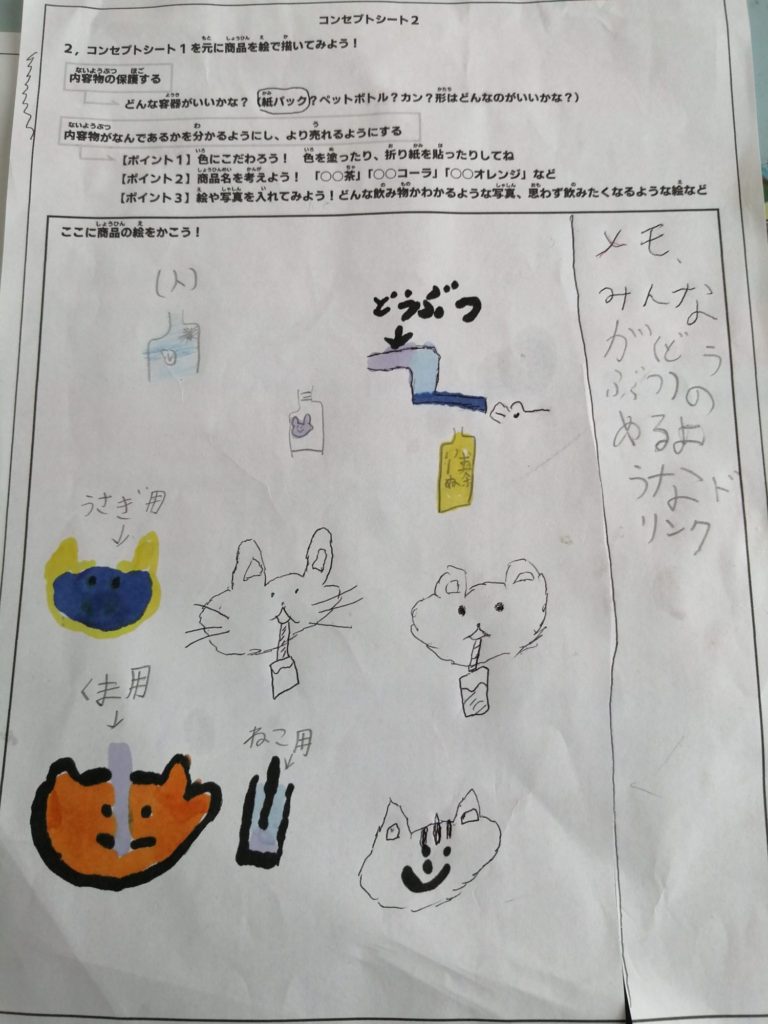 コンセプトシート2
2，コンセプトシート1を元に商品を絵で描いてみよう！
内容物の保護する
どんな容器がいいかな？（紙パック？ペットボトル？カン？形はどんなのがいいかな？）
内容物がなんであるかを分かるようにし、より売れるようにする
【ポイント1】色にこだわろう！　色を塗ったり、折り紙を貼ったりしてね
【ポイント2】商品名を考えよう！　「○○茶」「○○コーラ」「○○オレンジ」など
【ポイント3】絵や写真を入れてみよう！どんな飲み物かわかるような写真、思わず飲みたくなるような絵など
ここに商品の絵をかこう！
(人)
どうぶつ
うさぎ用
くま用
ねこ用
メモ、
みんな
が(どう
ぶつ)の
めるよ
うなド
リンク